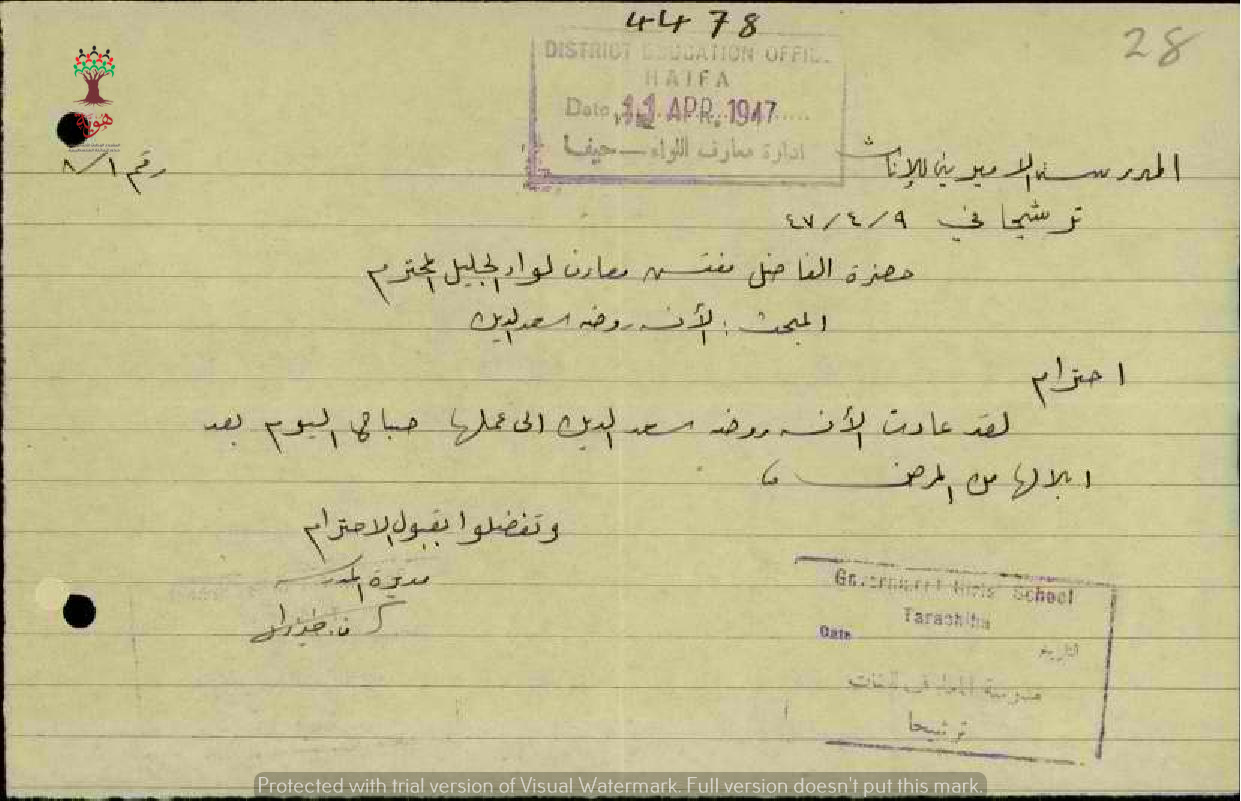 4478
28
DISTRICT EDUCATION OFFICE
HAIFA
Date 11 APR. 1947
ادارة معارف اللواء - حيفا
هوية
المدرسة الاميرية للإناث
رقم ٨/١
ترشيحا في ٤٧/٤/٩
حضرة الفاضل مفتش معارف لواء الجليل المحترم
المبحث : الأنسه روضه سعد الدين
احترام
لقد عادت الأنسه روضه سعد الدين الى عملها صباح اليوم بعد
ابلالها من المرض
وتفضلوا بقبول الاحترام
مديرة المدرسة
Government Girls' School
Tarashiha
Date
التاريخ
ترشيحا
Protected with trial version of Visual Watermark. Full version doesn't put this mark.